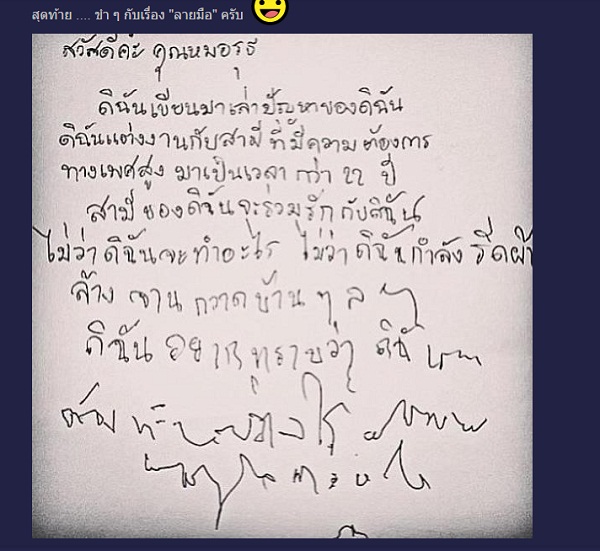 สุดท้าย .... ขำ ๆ กับเรื่อง "ลายมือ" ครับ
สวัสดีค่ะ คุณหมอรุธิ
ดิฉันเขียนมาเล่าปัญหาของดิฉัน
ดิฉันแต่งงานกับสามี ที่มีความต้องการ
ทางเพศสูง มาเป็นเวลา กว่า 22 ปี
สามี ของดิฉันจะร่วมรัก กับดิฉัน
ไม่ว่า ดิฉันจะ ทำอะไร ไม่ว่า ดิฉันกำลัง รีดผ้า
ล้าง จาน กวาด บ้าน ฯลฯ
ดิฉัน อยากทราบว่า ดิฉัน
ต้อง